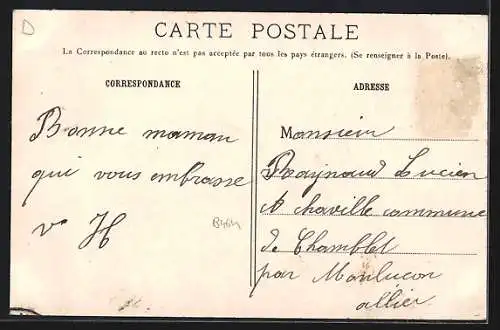 D
CARTE POSTALE
La Correspondance au recto n'est pas acceptée par tous les pays étrangers. (Se renseigner à la Poste).
CORRESPONDANCE
ADRESSE
Bonne maman
qui vous embrasse
H
Monsieur
Raynaud Lucien
A chaville commune
de Chamblet
par Monlucon
allier